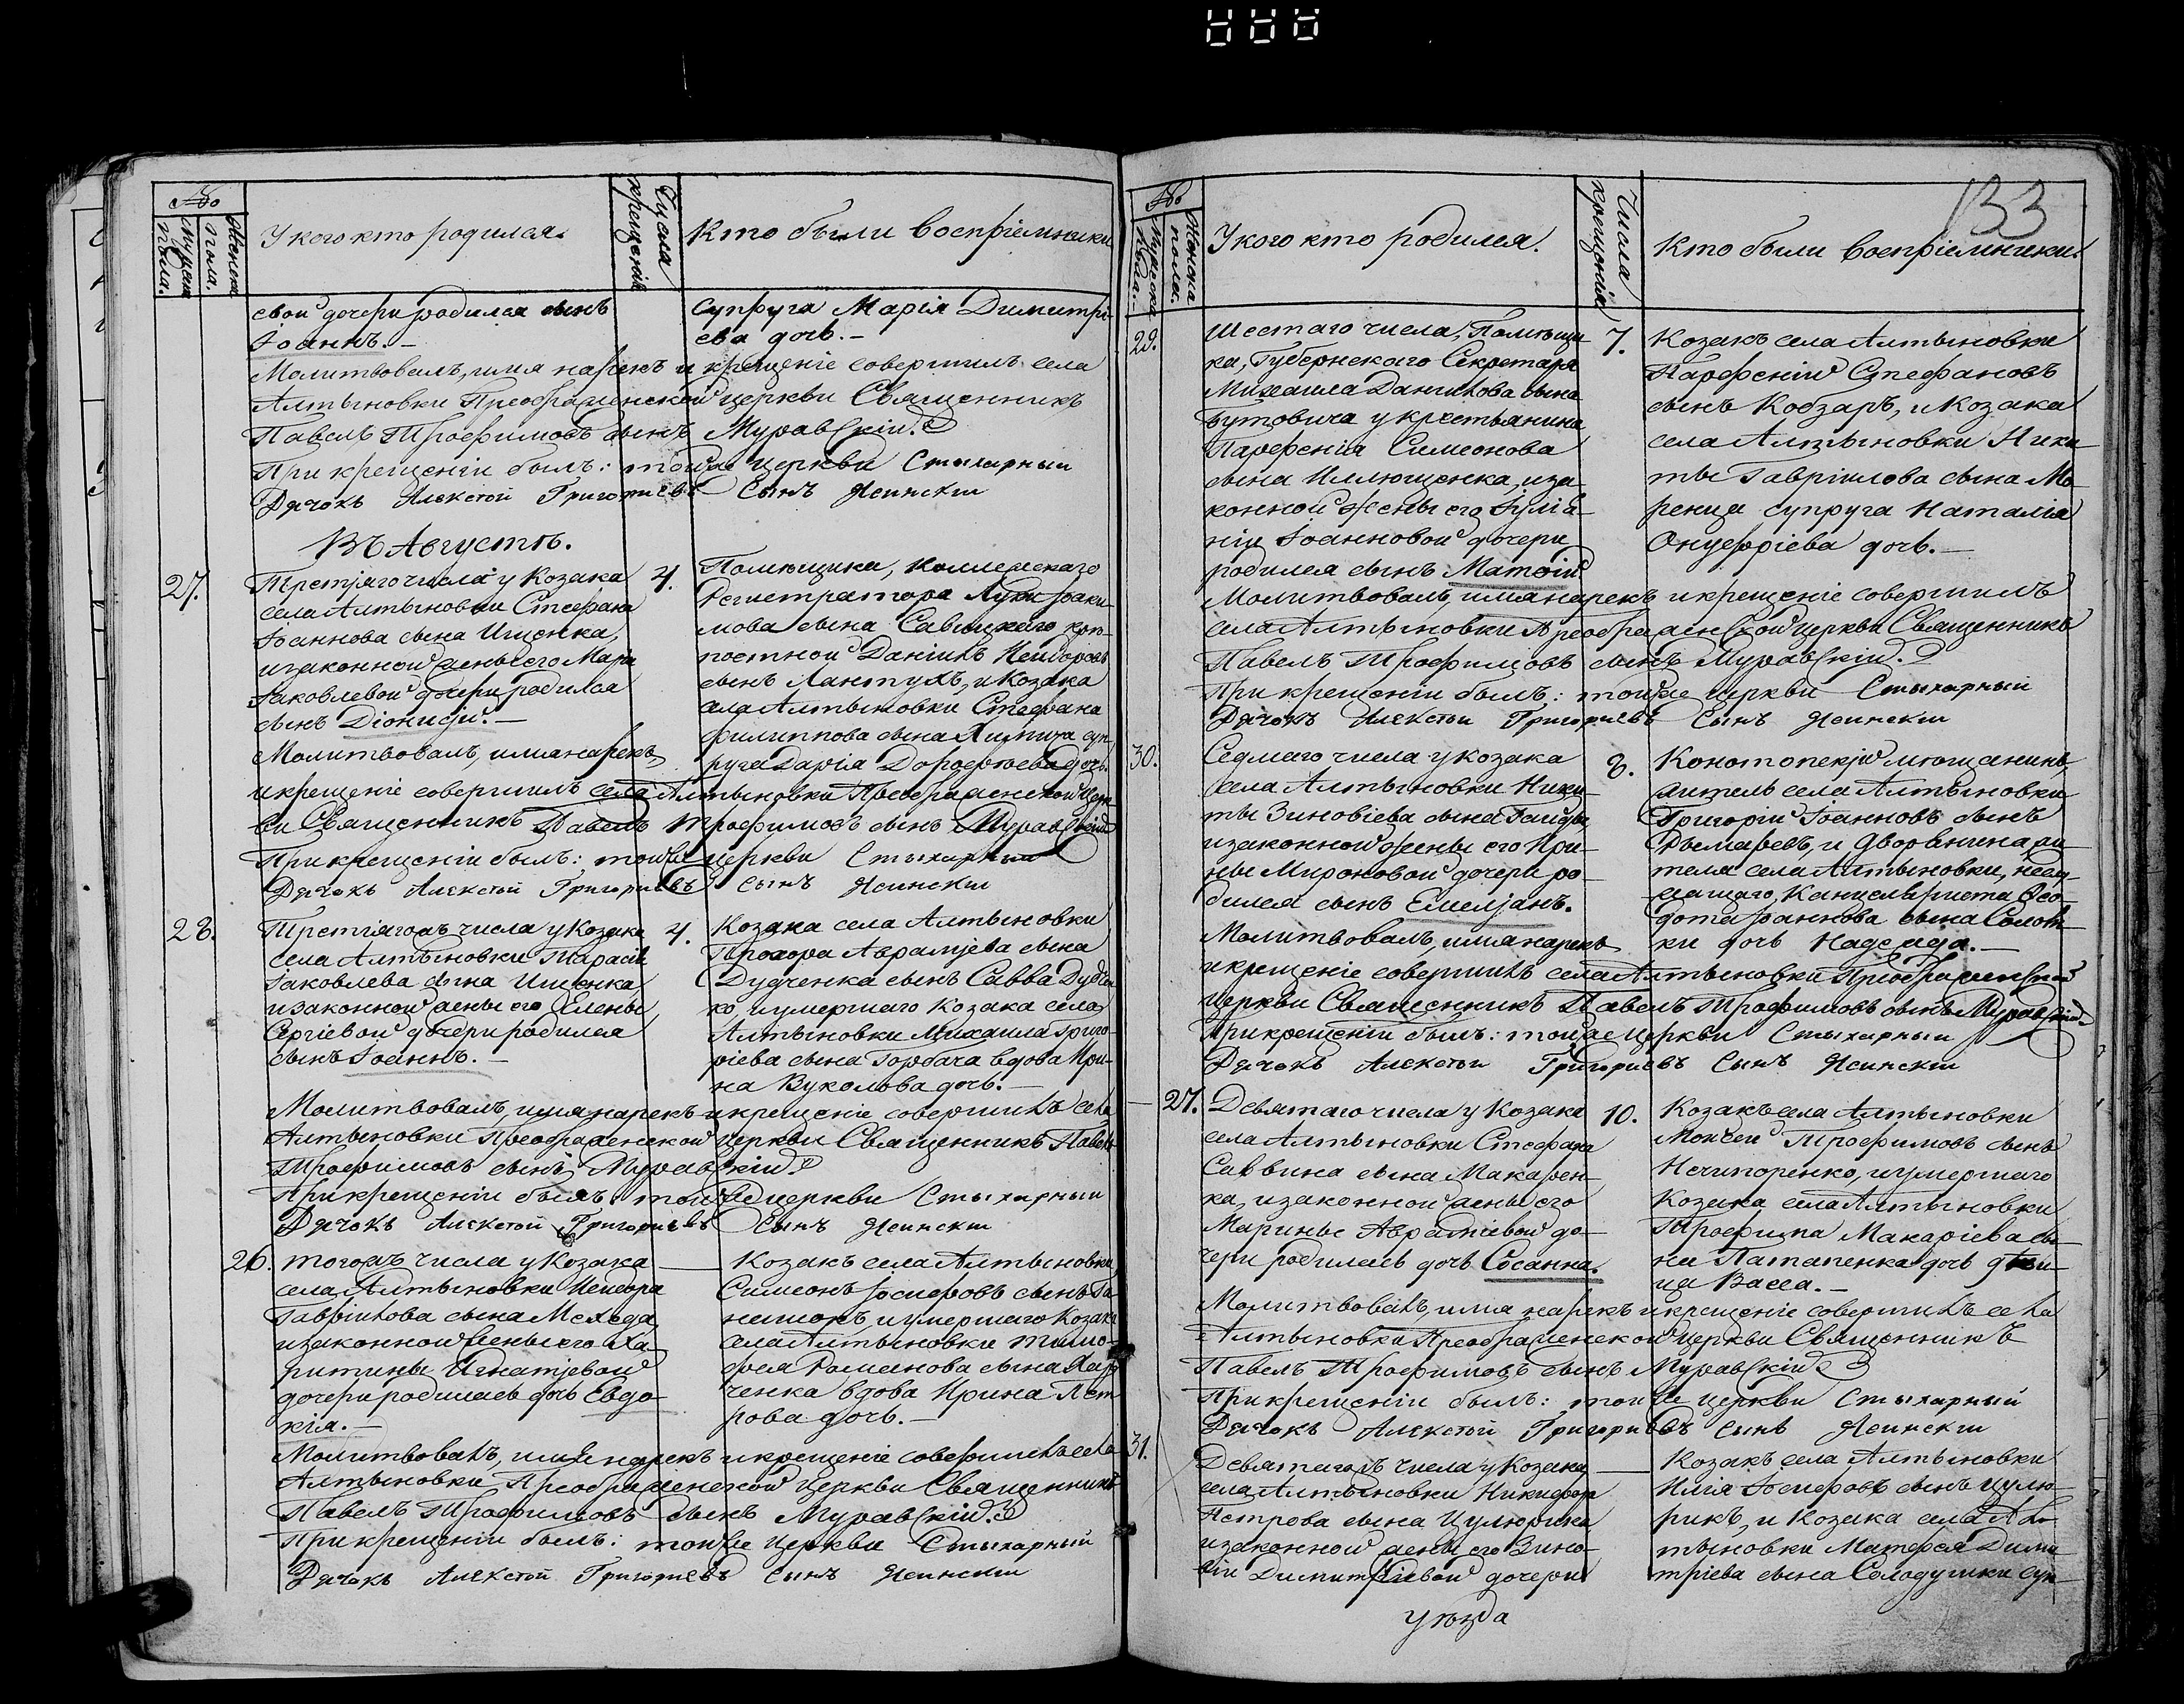 №
Мужеска пола.
Женска пола.
У кого кто родился.
Числа крещенія
Кто были воспріемники
свои дочери родился сынъ
Іоаннъ.—
супруга Марія Димитрі-
ева дочь.—
Молитвовалъ, имя нарекъ и крещеніе совершилъ села
Алтыновки Преображенской церкви Священникъ
Павелъ Трофимовъ сынъ Муравскій.
При крещеніи былъ: тойже церкви Стыхарный
Дячокъ Алексѣй Григориевъ Сынъ Ясинскій
Въ Августѣ.
27.
Третіяго числа у Козака
села Алтыновки Стефана
Іоаннова сына Ищенка,
и законной жены его Мари
Іаковлевой дочери родился
сынъ Діонисій.—
4.
Помѣщика, Коллежскаго
Регистратора Луки Іоаки-
мова сына Савицкаго крѣ-
постной Даніилъ Исидоровъ
сынъ Лантухъ, и Козака
села Алтыновки Стефана
Филиппова сына суп-
руга Дарія Дорофѣева дочь.
Молитвовалъ, имя нарекъ,
и крещеніе совершилъ села Алтыновки Преображенской церк-
ви Священникъ Павелъ Трофимовъ сынъ Муравскій
При крещеніи былъ: тойже церкви Стыхарный
Дячокъ Алексѣй Григориевъ Сынъ Ясинскій
28.
Третіягожъ числа у Козака
села Алтыновки Тарасія
Іаковлева сына Ищенка,
и законной жены его Елены
Сергіевой дочери родился
сынъ Іоаннъ.—
4.
Козака села Алтыновки
Прохора Аврамѣева сына
Дудченка сынъ Савва Дудчен
ко, и умершаго Козака села
Алтыновки Михаила Григо-
ріева сына Горбача вдова Ири-
на Вуколова дочь.—
Молитвовалъ, имя нарекъ и крещеніе совершилъ села
Алтыновки Преображенской церкви Священникъ Павелъ
Трофимовъ сынъ Муравскій
При крещеніи былъ: тойже церкви Стыхарный
Дячокъ Алексѣй Григориевъ Сынъ Ясинскій
26.
Тогожъ числа у Козака
села Алтыновки Исидора
Гавріилова сына
и законной жены его Ха-
ритины Игнатіевой
дочери родилась дочь Евдо-
кія.—
Козакъ села Алтыновки
Симеонъ Іосифовъ сынъ Га-
и умершаго Козака
села Алтыновки Тимо-
фея Романова сына Хар-
ченка вдова Ирина Пет-
рова дочь.—
Молитвовалъ, имя нарекъ и крещеніе совершилъ села
Алтыновки Преображенской церкви Священникъ
Павелъ Трофимовъ сынъ Муравскій.
При крещеніи былъ: тойже церкви Стыхарный
Дячокъ Алексѣй Григориевъ Сынъ Ясинскій
133
№
Мужеска пола.
Женска пола.
У кого кто родился.
Числа крещенія
Кто были воспріемники.
29.
Шестаго числа, Помѣщи-
ка, Губернскаго Секретаря
Михаила Даниилова сына
Бутовича у крестьянина
Парфенія Симеонова
сына Иллющенка, и за-
конной жены его Іуліа-
ніи Іоанновой дочери
родился сынъ Матѳій.
7.
Козакъ села Алтыновки
Парфеній Стефановъ
сынъ Кобзаръ, и Козака
села Алтыновки Ники-
ты Гавріилова сына Мо-
ренца супруга Наталія
Онуфріева дочь.—
Молитвовалъ, имя нарекъ и крещеніе совершилъ
села Алтыновки Преображенской церкви Священникъ
Павелъ Трофимовъ сынъ Муравскій.
При крещеніи былъ: тойже церкви Стыхарный
Дячокъ Алексѣй Григориевъ Сынъ Ясинскій
30.
Седмаго числа у козака
села Алтыновки Ники-
ты Зиновіева сына Гайды,
и законной жены его Ири-
ны Мироновой дочери ро-
дился сынъ Емеліанъ.
8.
Конотопскій мѣщанинъ,
житель села Алтыновки
Григорій Іоанновъ сынъ
и Дворянина жи-
теля села Алтыновки, неслу-
жащаго, Канцеляриста Ѳео-
дота Іоаннова сына
ки дочь Надежда.—
Молитвовалъ, имя нарекъ
и крещеніе совершилъ села Алтыновки Преображенской
церкви Священникъ Павелъ Трофимовъ сынъ Муравскій.
При крещеніи былъ: тойже церкви Стыхарный
Дячокъ Алексѣй Григориевъ Сынъ Ясинскій
27.
Девятаго числа у Козака
села Алтыновки Стефана
Саввина сына Макарен-
ка, и законной жены его
Марины Аврамѣевой до-
чери родилась дочь Сосанна.
10.
Козакъ села Алтыновки
Моисей Трофимовъ сынъ
Нечипоренко, и умершаго
Козака села Алтыновки
Трофима Макаріева сы-
на Патапенка дочь дѣви-
ца Васса.—
Молитвовалъ, имя нарекъ и крещеніе совершилъ села
Алтыновки Преображенской церкви Священникъ
Павелъ Трофимовъ сынъ Муравскій
При крещеніи былъ: тойже церкви Стыхарный
Дячокъ Алексѣй Григориевъ Сынъ Ясинскій
31.
Девятагожъ числа у Козака
села Алтыновки Никифора
Петрова сына Цулюрика
и законной жены его Зино-
віи Димитріевой дочери
Козакъ села Алтыновки
Илія Іосифовъ сынъ Цулю-
рикъ, и Козака села Ал-
тыновки Матфея Дими-
тріева сына Солодушки суп-
уѣзда